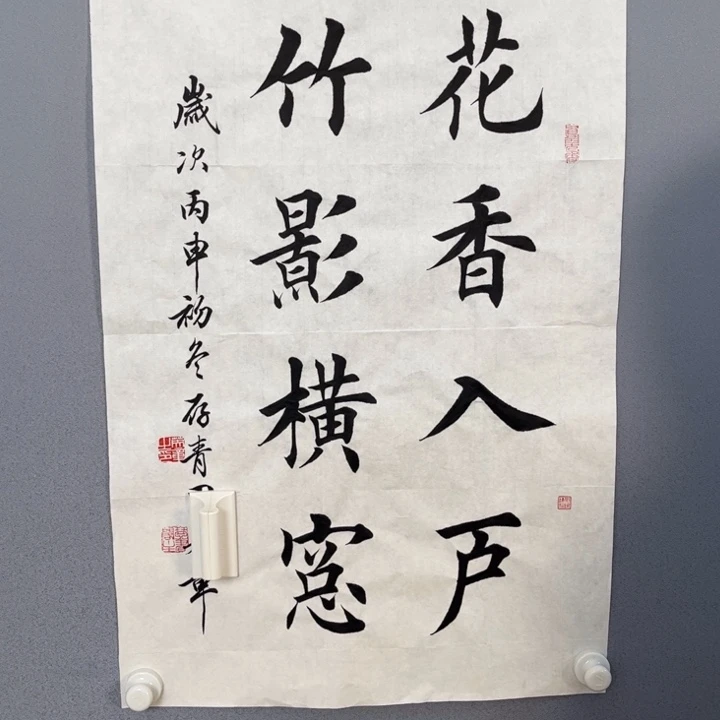 花香入戶
竹影橫窓
歲次丙申初冬存青